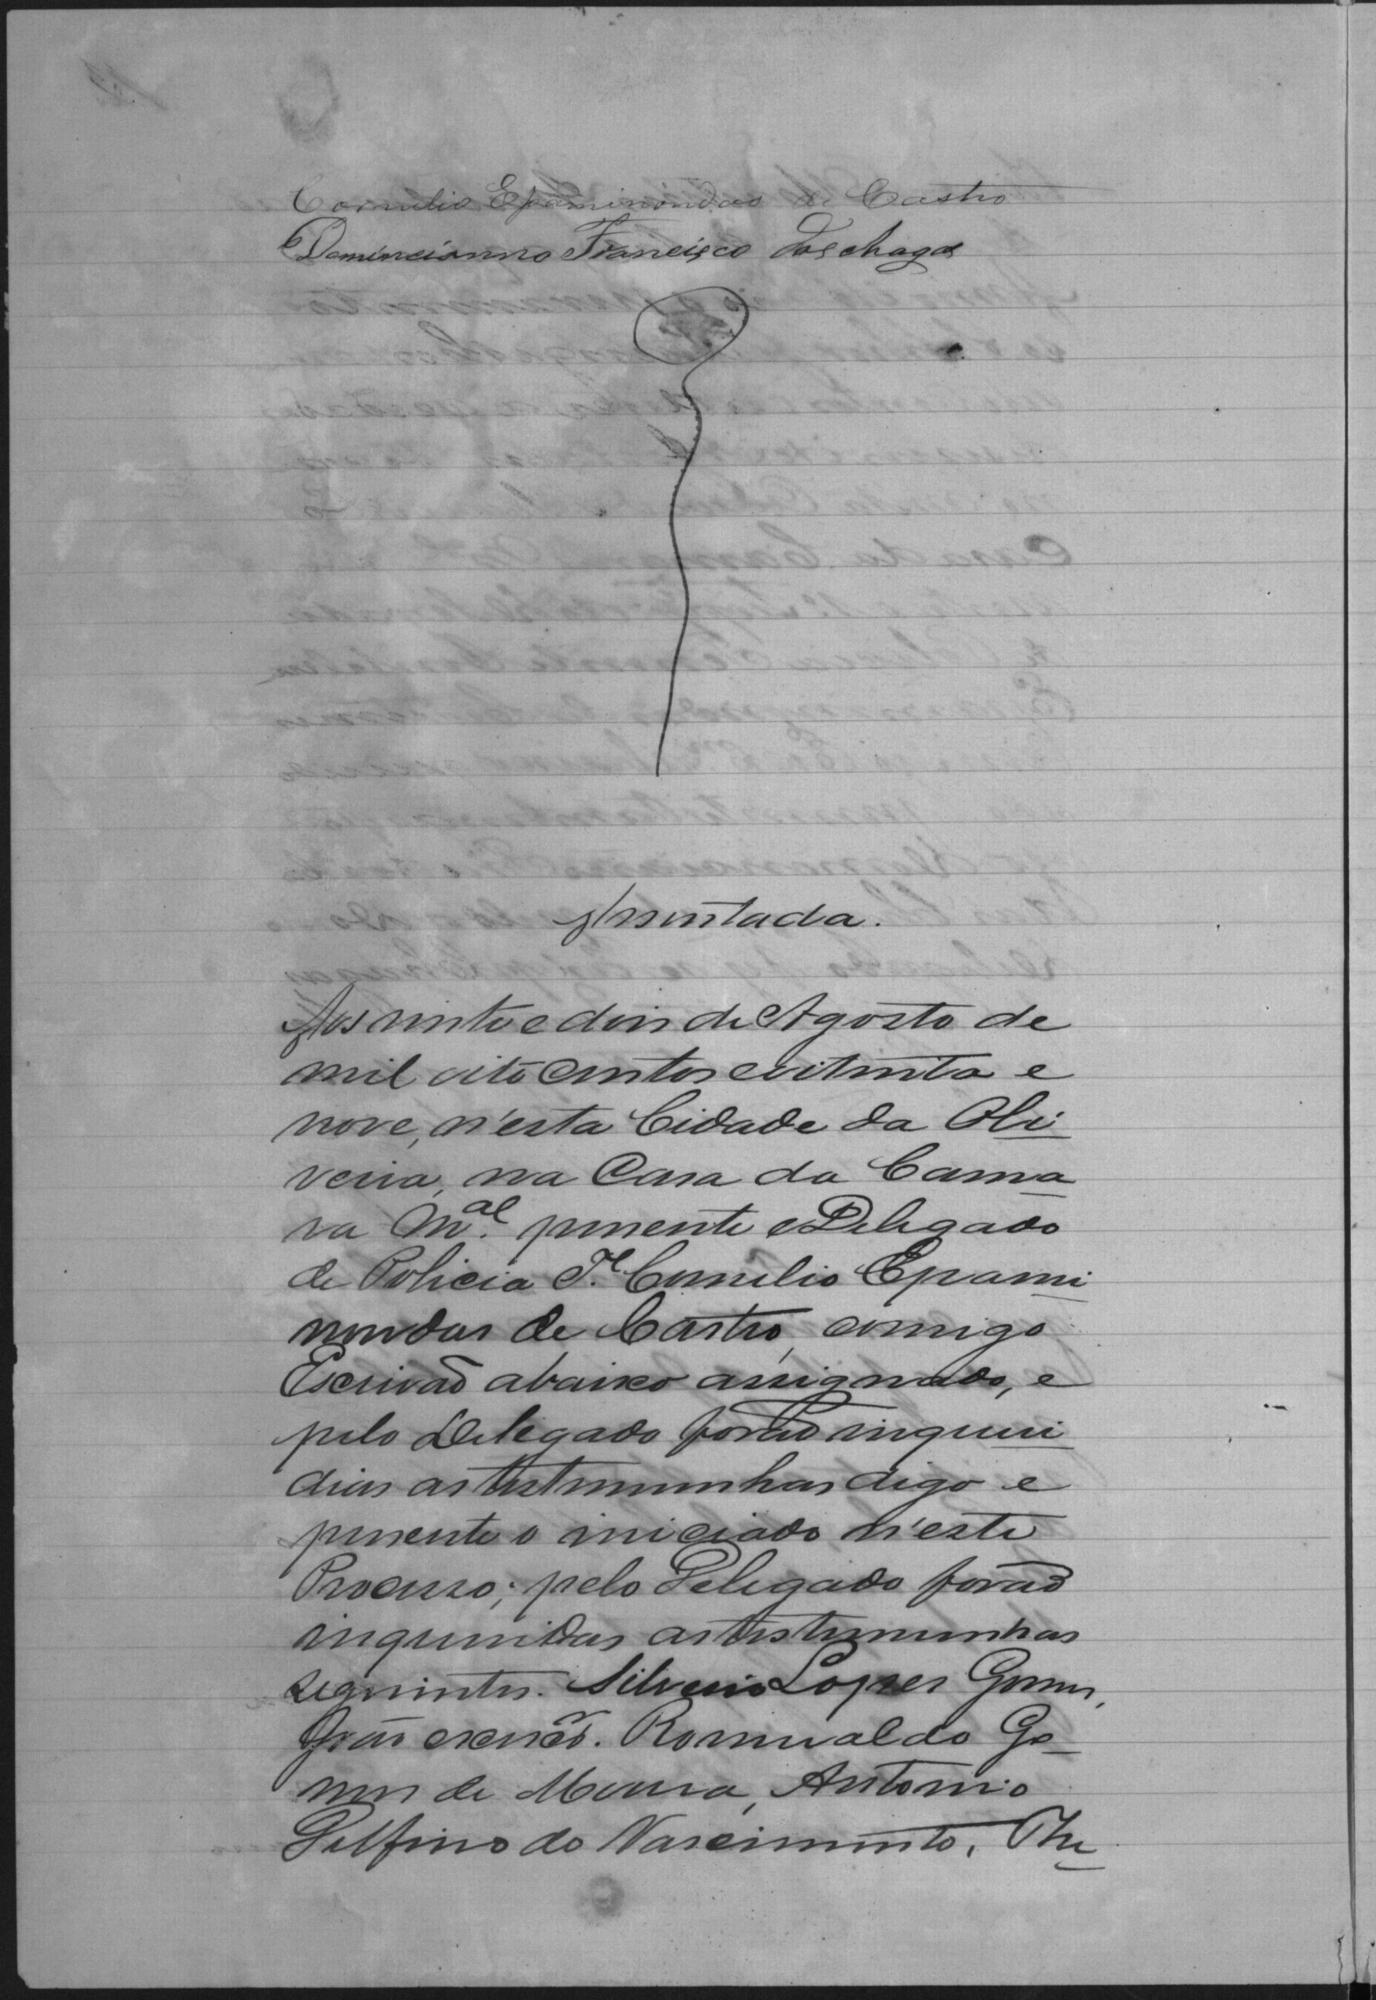 Cornelio Epaminondas de Castro
Domincianno Francisco das chagas
Assentada.
Aos vinte e dois de Agosto de
mil oito centos e oitenta e
nove, n'esta Cidade da Oli
veira, na Casa da Cama
ra M.al presente o Delegado
de Policia Te. Cornelio Epami
nondas de Castro, comigo
Escrivão abaixo assignado, e
pelo Delegado forão inqueri
dias as testemunhas digo e
presente o iniciado n'este
Processo; pelo Delegado forão
inqueridas as testemunhas
seguintes. Silverio Lopes Gomes,
João. Romualdo Go
mes de Moura, Antonio
Delfino do Nascimento, The